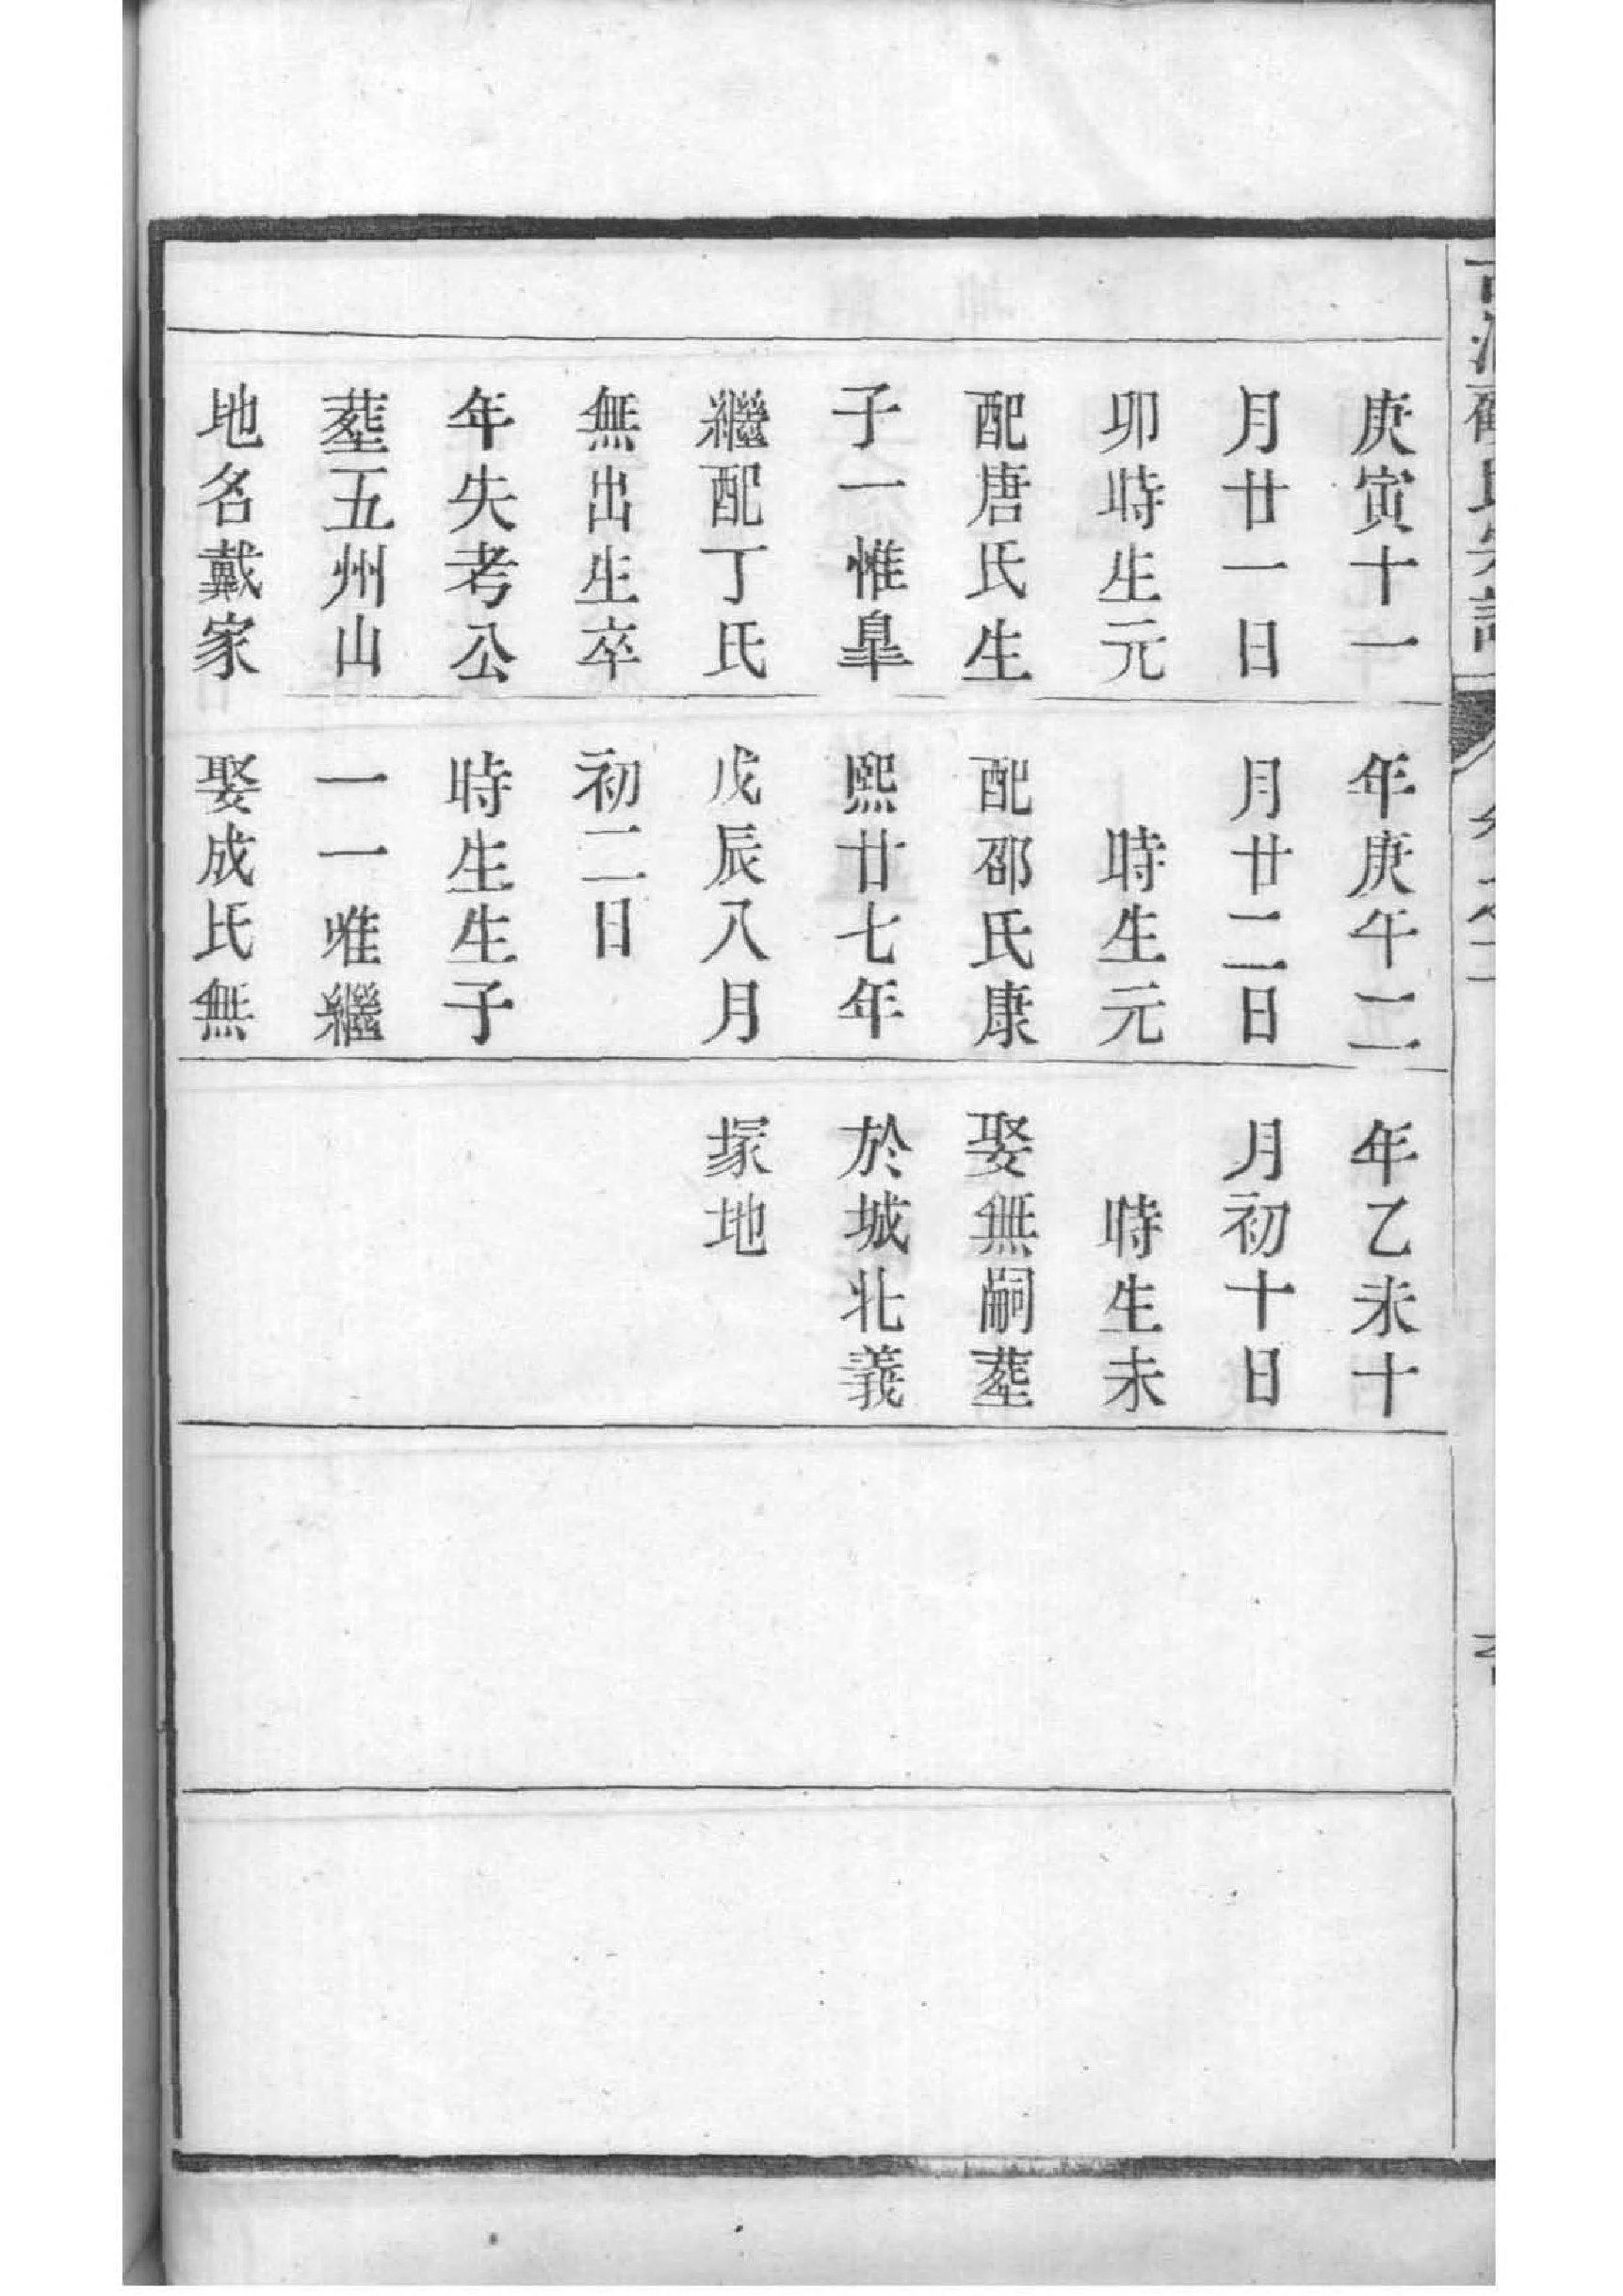 庚寅十一
月廿一日
卯時生元
配唐氏生
子一惟臯
繼配丁氏
無出生卒
年失考公
葬五州山
地名戴家
年庚午二
月廿二日
時生元
配邵氏康
熙廿七年
戊辰八月
初二日
時生生子
一一唯繼
娶成氏無
年乙未十
月初十日
時生未
娶無嗣葬
於城北義
塚地